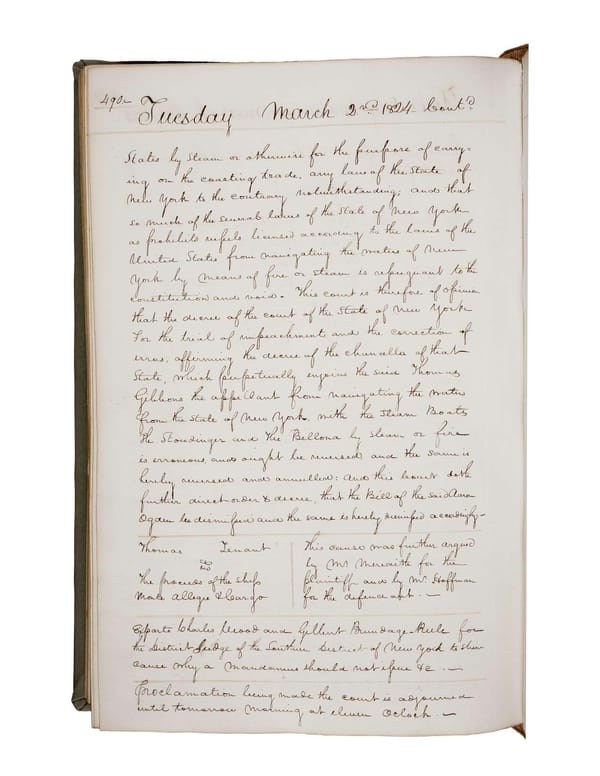 490
Tuesday March 2nd 1824 Contd
States by Steam or otherwise for the purpose of carry-
ing on the coasting trade, any law of the State of
New York to the contrary notwithstanding; and that
so much of the several laws of the State of New York
as prohibits vessels licensed according to the laws of the
United States from navigating the waters of New
York by means of fire or steam is repugnant to the
constitution and void. This court is therefore of opinion
that the decree of the court of the State of New York
For the trial of impeachment and the correction of
errors, affirming the decree of the chancellor of that
State, which perpetually enjoins the said Thomas
Gibbons the appellant from navigating the waters
from the State of New York with the Steam Boats
the Stoudinger and the Bellona by steam or fire
is erroneous, and ought be reversed and the same is
hereby reversed and annulled: And this court doth
further direct order & decree, that the Bill of the said Aaron
Ogden be dismissed and the same is hereby dismissed accordingly -
Thomas Tenant
vs
The proceeds of the ship
Mole Allegre & Cargo
This cause was further argued
by Mr Meredith for the
plaintiff and by Mr Hoffman
for the defendant. -
Exparte Charles Wood and Gilbert Brundage Rule for
the District Judge of the Southern District of New York to shew
cause why a Mandamus should not issue &c. -
Proclamation being made the court is adjourned
until tomorrow morning at eleven Oclock. -